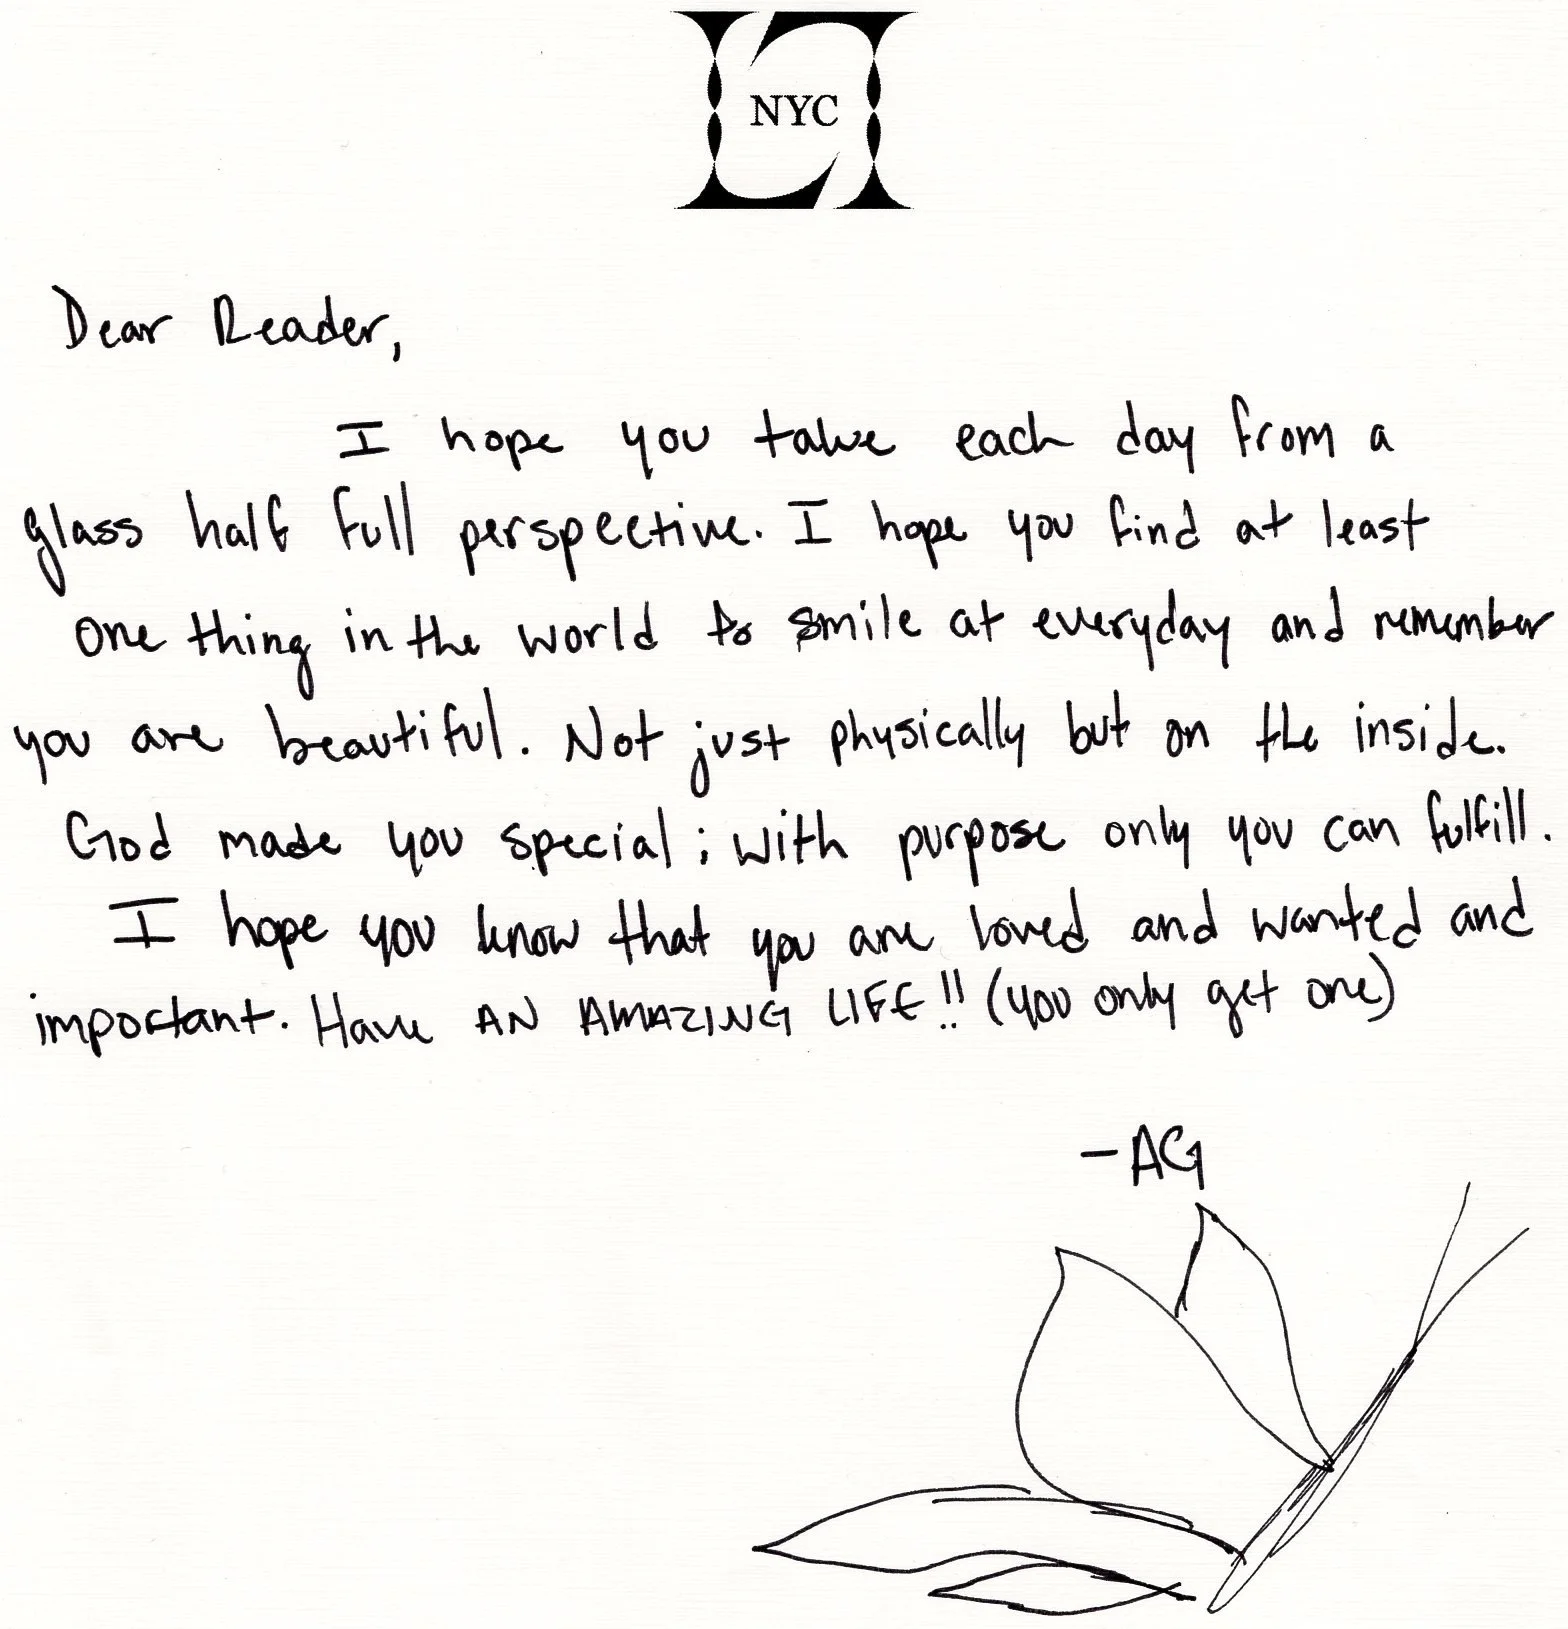 NYC
Dear Reader,
I hope you take each day from a
glass half full perspective. I hope you find at least
one thing in the world to smile at everyday and remember
you are beautiful. Not just physically but on the inside.
God made you special; with purpose only you can fulfill.
I hope you know that you are loved and wanted and
important. Have AN AMAZING LIFE!! (you only get one)
-AG